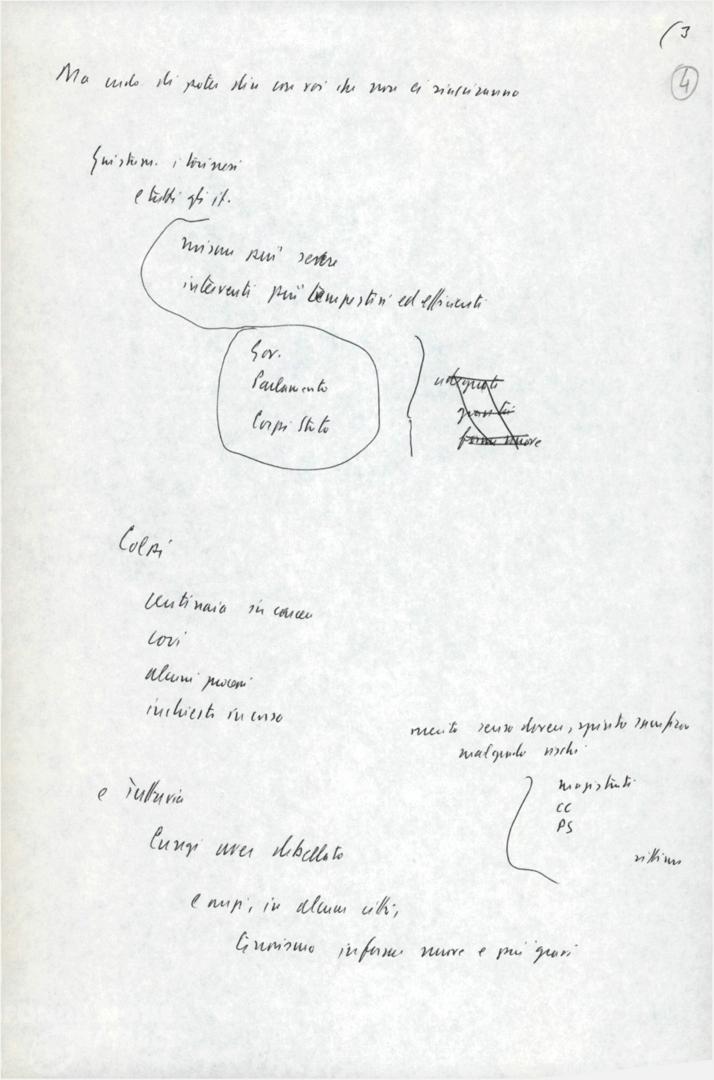 (3
4
Ma credo di poter dire con voi che non ci riusciranno
i torinesi
e tutti gli it.
misure più severe
interventi più tempestivi ed efficienti
Gov.
Parlamento
Corpi Stato
adeguati
forme nuove
Colpi
centinaia in carcere
covi
alcuni processi
inchieste in corso
merito senso dovere, spirito sacrificio
malgrado rischi
magistrati
CC
PS
vittime
e tuttavia
Lungi aver debellato
e anzi, in alcune città,
terrorismo in forme nuove e più gravi